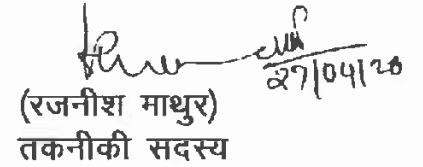 27/04/20
(रजनीश माथुर)
तकनीकी सदस्य